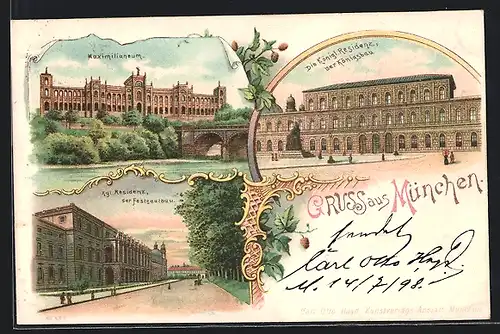 Maximilianeum.
Die Königl. Residenz,
der Königsbau
Kgl. Residenz,
der Festsaalbau.
GRUSS aus München.
sendet
Carl Otto
M. 14/7/98.